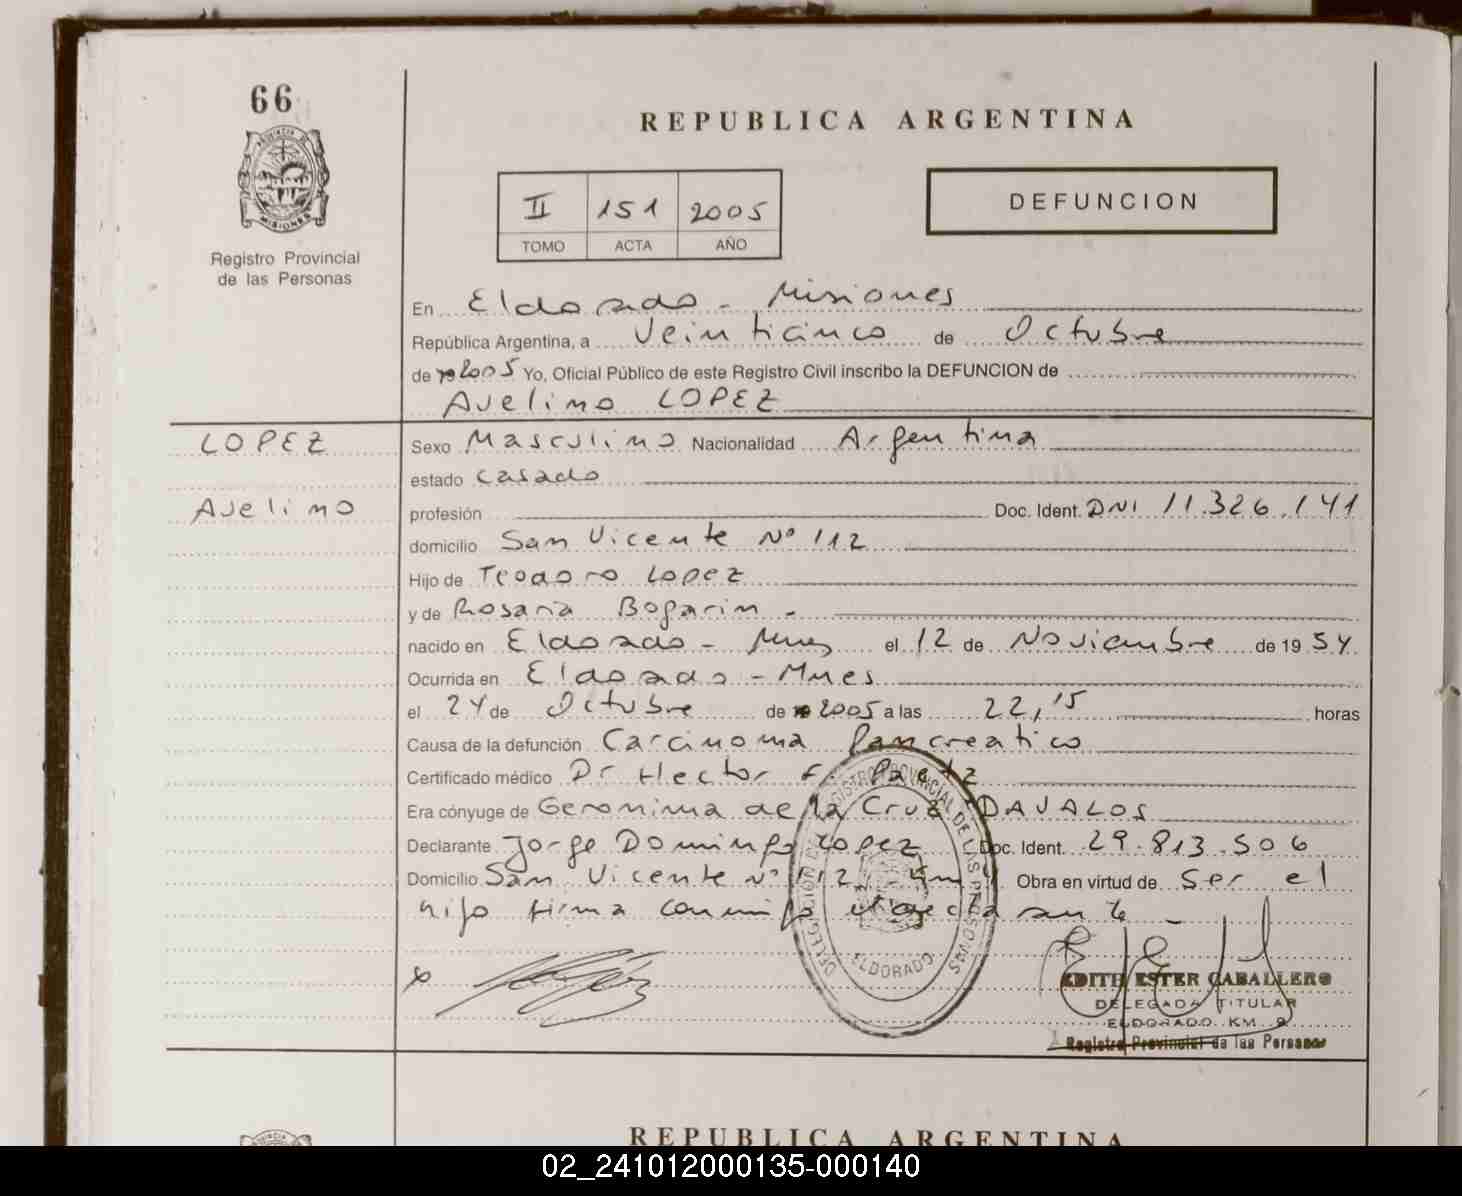 66
REPUBLICA ARGENTINA
PROVINCIA DE
MISIONES
Registro Provincial
de las Personas
II 151 2005
TOMO ACTA AÑO
DEFUNCION
En Eldorado - Misiones
República Argentina, a Veinticinco de Octubre
de 2005 Yo, Oficial Público de este Registro Civil inscribo la DEFUNCION de
Avelino LOPEZ
LOPEZ
Avelino
Sexo Masculino Nacionalidad Argentina
estado Casado
profesión Doc. Ident. DNI 11.326.141
domicilio San Vicente Nº 112
Hijo de Teodoro Lopez
y de Rosaria Bogarin -
nacido en Eldorado - Mnes el 12 de Noviembre de 1954
Ocurrida en Eldorado - Mnes
el 24 de Octubre de 2005 a las 22,15 horas
Causa de la defunción Carcinoma Pancreatico
Certificado médico Dr Hector F.
Era cónyuge de Geronima de la Cruz DAVALOS
Declarante Jorge Domingo Lopez Doc. Ident. 29.813.506
Domicilio San Vicente Nº 112, Km 9 Obra en virtud de ser el
hijo firma conmigo
DELEGACION REGISTRO PROVINCIAL DE LAS PERSONAS
ELDORADO
EDITH ESTER CABALLERO
DELEGADA TITULAR
ELDORADO KM 9
Registro Provincial de las Personas
REPUBLICA ARGENTINA
02_241012000135-000140